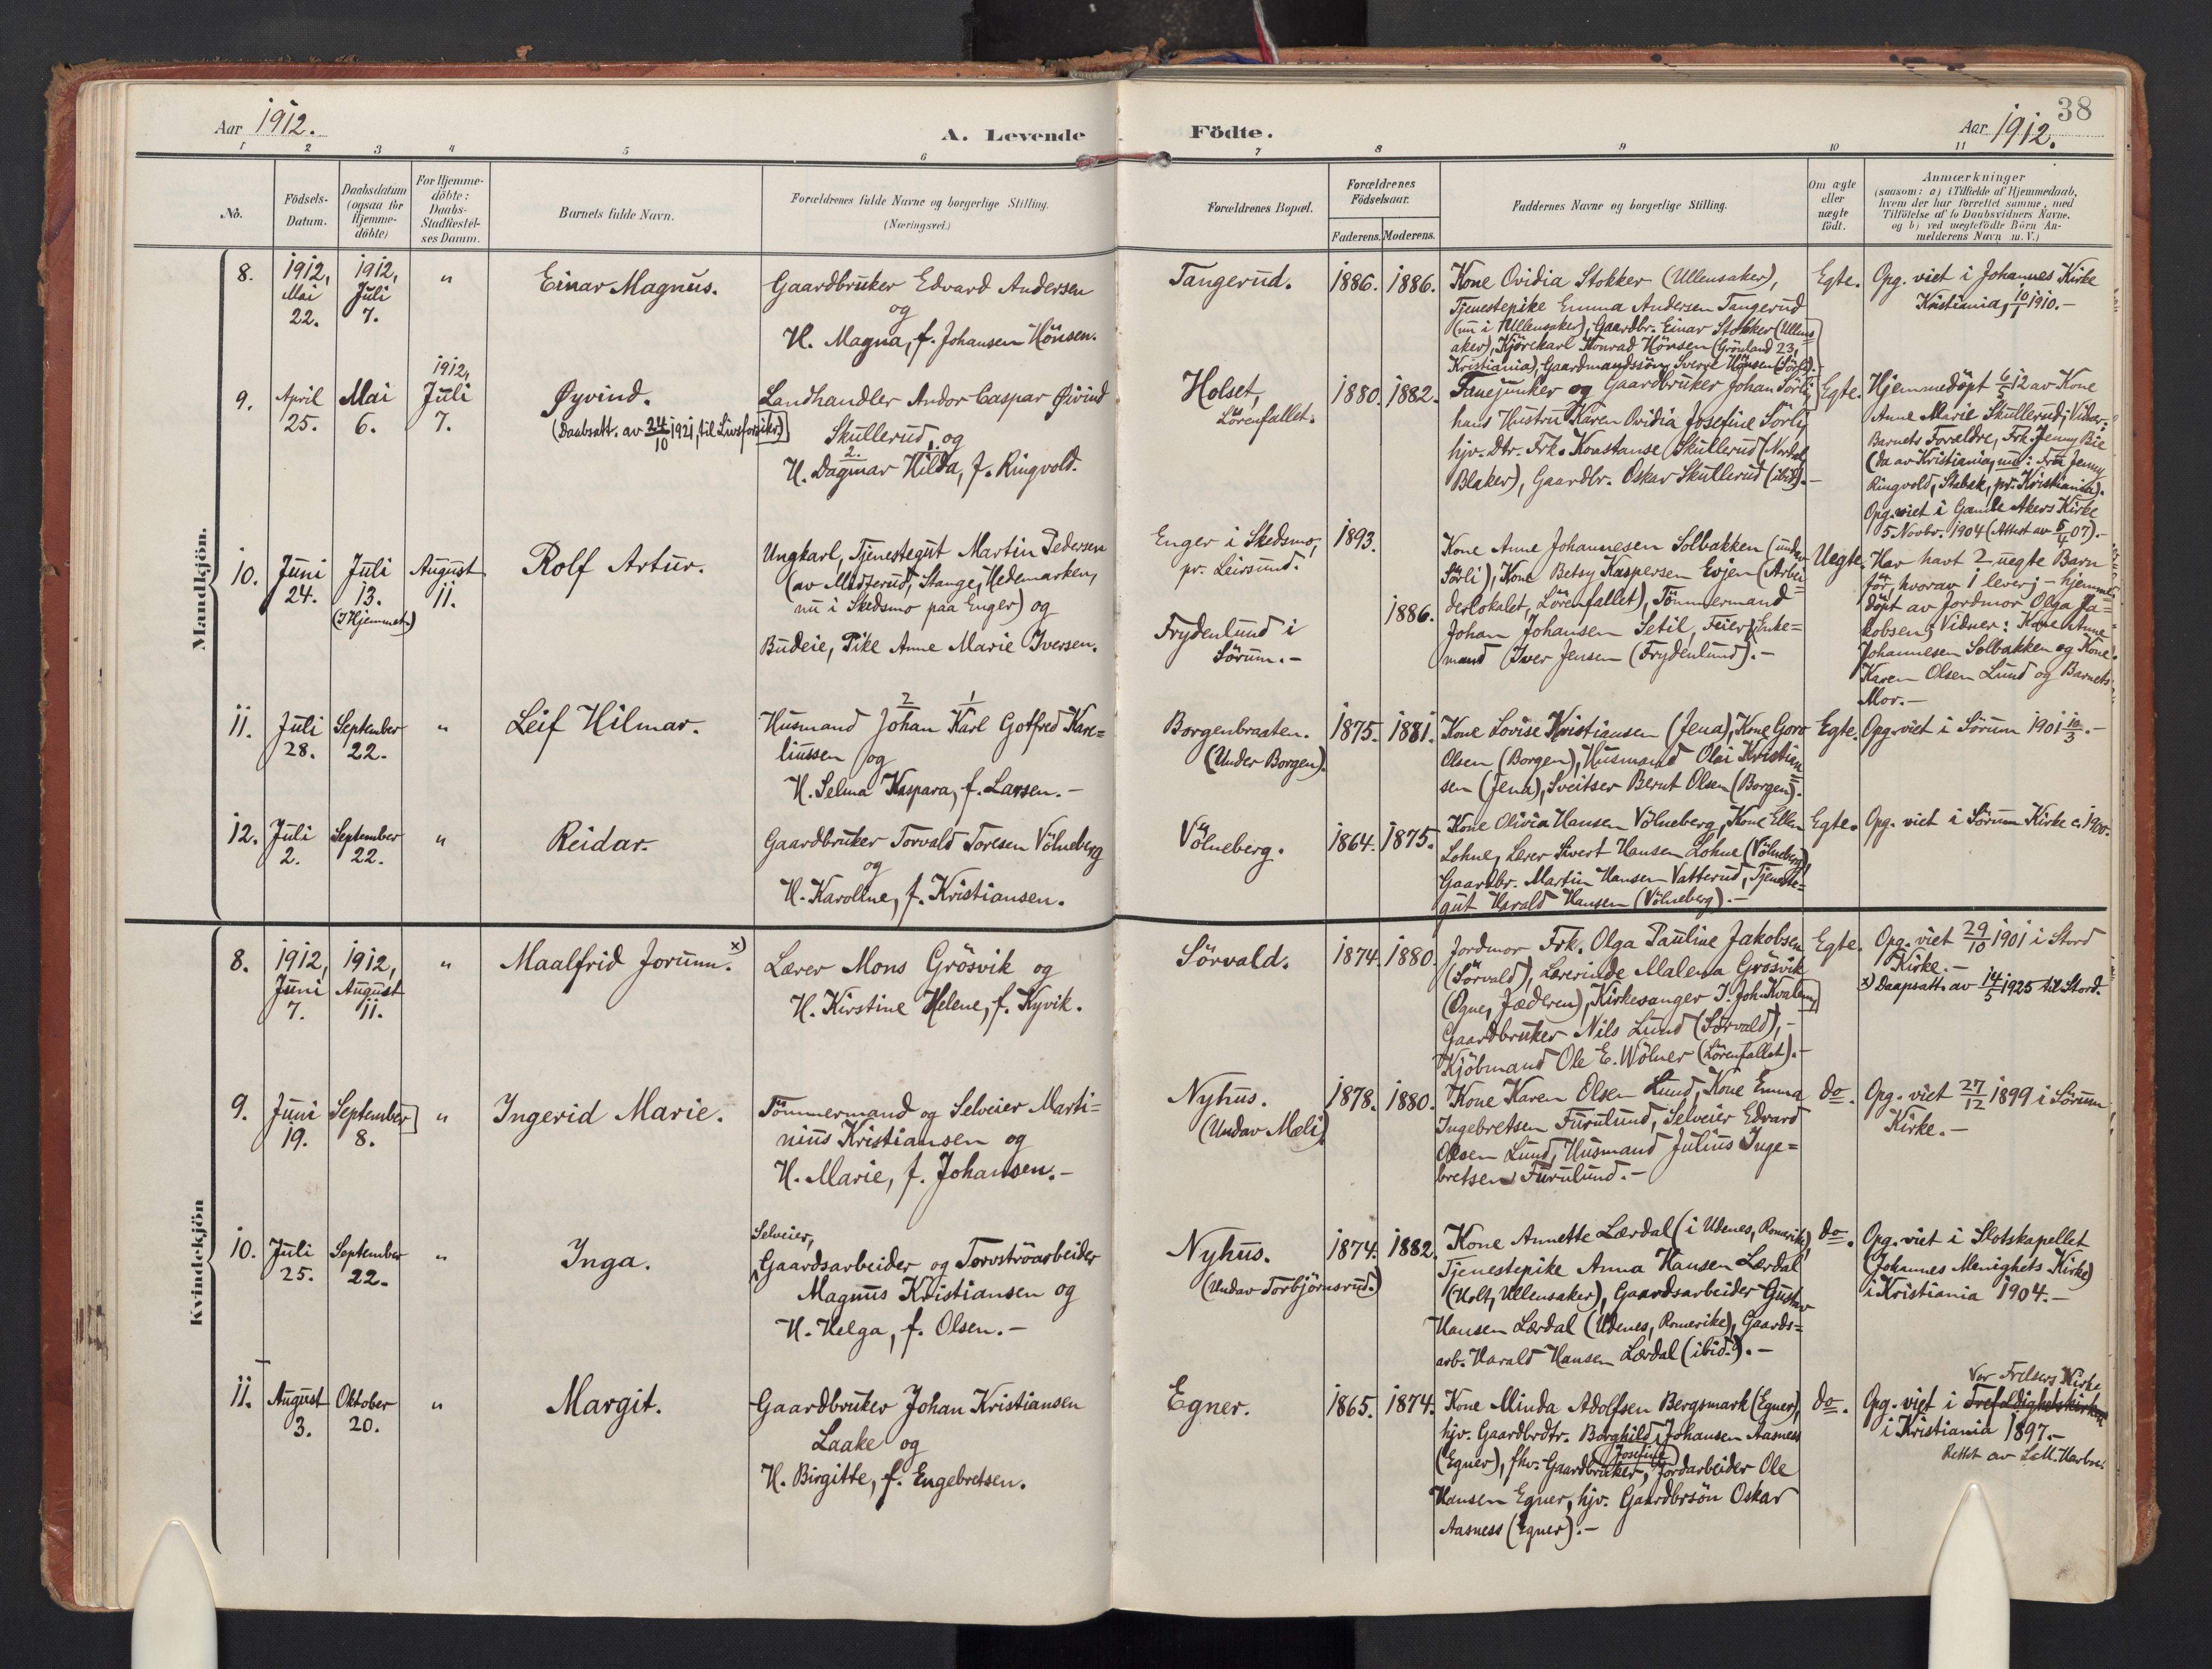 38
Aar 1912.
A. Levende
Födte.
Aar 1912.
1 2 3 4 5 6 7 8 9 10 11
No.
Födsels-
Datum.
Daabsdatum
(ogsaa for
Hjemme-
döbte)
For Hjemme-
döbte:
Daabs-
Stadfæstel-
ses Datum.
Barnets fulde Navn.
Forældrenes fulde Navne og borgerlige Stilling.
(Næringsvei.)
Forældrenes Bopæl.
Forældrenes
Födselsaar.
Faderens. Moderens.
Faddernes Navne og borgerlige Stilling.
Om ægte
eller
uægte
födt.
Anmærkninger
(saasom: a) i Tilfælde af Hjemmedaab,
hvem der har forrettet samme, med
Tilföielse af to Daabsvidners Navne,
og b) ved uægtefödte Börn An-
melderens Navn m. V.)
Mandkjön.
8.
1912,
Mai
22.
1912,
Juli
7.
"
Einar Magnus.
Gaardbruker Edvard Andersen
og
H. Magna, f. Johansen Hönsen.
Tangerud.
1886.
1886.
Kone Ovidia Stokker (Ullensaker),
Tjenestepike Emma Andersen Tangerud
(nu i Ullensaker), Gaardbr. Einar Stokker (Ullens=
aker), Kjörekarl Konrad Hönsen (Grönland 23,
Kristiania), Gaardmandssön Sverre Hönsen (Sörli).
Egte.
Opg. viet i Johannes Kirke
Kristiania, 10/1 1910.-
9.
April
25.
Mai
6.
1912,
Juli
7.
Øyvind.
(Daabsatt. av 24/10 1921, til Livsforsikr.)
Landhandler Andor Caspar Øivind
Skullerud, og
2.
H. Dagmar Hilda, f. Ringvold.
Holset,
Lörenfallet.
1880.
1882.
Fanejunker og Gaardbruker Johan Sörli,
hans Hustru Karen Ovidia Josefine Sörli,
hjv. Dtr. Frk. Konstanse Skullerud (Nordal
Blaker), Gaardbr. Oskar Skullerud (ibid).-
Egte.
Hjemmedöpt 6/5 12 av Kone
Anne Marie Skullerud; Vidner:
Barnets Forældre, Frk. Jenny Bie
(da av Kristiania, nu: Fru Jenny
Ringvold, Stabæk, pr. Kristiania).
Opg. viet i Gamle Akers Kirke
5. Novbr. 1904 (Attest av 5/4 07).-
10.
Juni
24.
Juli
13.
(I Hjemmet)
August
11.
Rolf Artur.
Ungkarl, Tjenestegut Martin Pedersen
(av , Stange, Hedemarken,
nu i Skedsmo paa Enger) og
Budeie, Pike Anne Marie Iversen.
Enger i Skedsmo,
pr. Leirsund.
Frydenlund i
Sörum.-
1893.
1886.
Kone Anne Johannesen Solbakken (under
Sörli), Kone Betsy Kaspersen Evjen (Arbei=
derlokalet, Lörenfallet), Tömmermand
Johan Johansen Setil, Feier, Enke=
mand Iver Jensen (Frydenlund).-
Uegte.
Har havt 2 uegte Barn
för, hvorav 1 lever; - hjemme
döpt av Jordmor Olga Ja=
kobsen; Vidner: Kone Anne
Johannesen Solbakken og Kone
Karen Olsen Lund og Barnets
Mor.-
11.
Juli
28.
September
22.
"
Leif Hilmar.
2 1
Husmand Johan Karl Gotfred Kare=
liussen og
H. Selma Kaspara, f. Larsen.-
Borgenbraaten.
(Under Borgen).
1875.
1881.
Kone Lovise Kristiansen (Jena), Kone Goro
Olsen (Borgen), Husmand Olai Kristian
sen (Jena), Sveitser Bernt Olsen (Borgen).
Egte.
Opg. viet i Sörum 1901 10/3.-
12.
Juli
2.
September
22.
"
Reidar.
Gaardbruker Torvald Toresen Völneberg
og
H. Karoline, f. Kristiansen.
Völneberg.
1864.
1875.
Kone Olivia Hansen Völneberg, Kone Ellen
Lohne, Lærer Sivert Hansen Lohne (Völneberg),
Gaardbr. Martin Hansen Vatterud, Tjeneste=
gut Harald Hansen (Völneberg).-
Egte.
Opg. viet i Sörum Kirke c. 1900.
Kvindekjön
8.
1912,
Juni
7.
1912,
August
11.
"
Maalfrid Jorunn. x)
Lærer Mons Grösvik og
H. Kirstine Helene, f. Kyvik.
Sörvald.
1874.
1880.
Jordmor Frk. Olga Pauline Jakobsen
(Sörvald), Lærerinde Malena Grösvik
(Ogne, Jæderen), Kirkesanger J. Joh. Kvalem,
Gaardbruker Nils Lund (Sörvald),-
Kjöbmand Ole E. Wölner (Lörenfallet).-
Egte.
Opg. viet 29/10 1901 i Stord
Kirke.-
x) Daapsatt. av 14/5 1925 til Stord.
9.
Juni
19.
September
8.
"
Ingerid Marie.
Tömmermand og Selveier Marti=
nius Kristiansen og
H. Marie, f. Johansen.-
Nyhus.
(Undav Mæli)
1878.
1880.
Kone Karen Olsen Lund, Kone Emma
Ingebretsen Furulund, Selveier Edvard
Olsen Lund, Husmand Julius Inge=
bretsen Furulund.-
do.
Opg. viet 27/12 1899 i Sörum
Kirke.-
10.
Juli
25.
September
22.
"
Inga.
Selveier,
Gaardsarbeider og Torvströarbeider
Magnus Kristiansen og
H. Helga, f. Olsen.-
Nyhus.
(Undav Torbjörnsrud.)
1874.
1882.
Kone Annette Lærdal (i Udenes, Romerike),
Tjenestepike Anna Hansen Lærdal
(Holt, Ullensaker), Gaardsarbeider Gustav
Hansen Lærdal (Udenes, Romerike), Gaards=
arb. Harald Hansen Lærdal (ibid.).-
do.
Opg. viet i Slotskapellet
(Johannes Menighets Kirke)
i Kristiania 1904.-
11.
August
3.
Oktober
20.
"
Margit.
Gaardbruker Johan Kristiansen
Laake og
H. Birgitte, f. Engebretsen.
Egner.
1865.
1874.
Kone Minda Adolfsen Bergsmark (Egner),
hjv. Gaardbrdtr. Borghild Johansen Aasness
Josefine
(Egner), fhv. Gaardbruker, Jordarbeider Ole
Hansen Egner, hjv. Gaardbrsön Oskar
Aasness (Egner).-
do.
Vor Frelsers Kirke
Opg. viet i Trefoldighetskirken
i Kristiania 1897.-
Rettet av